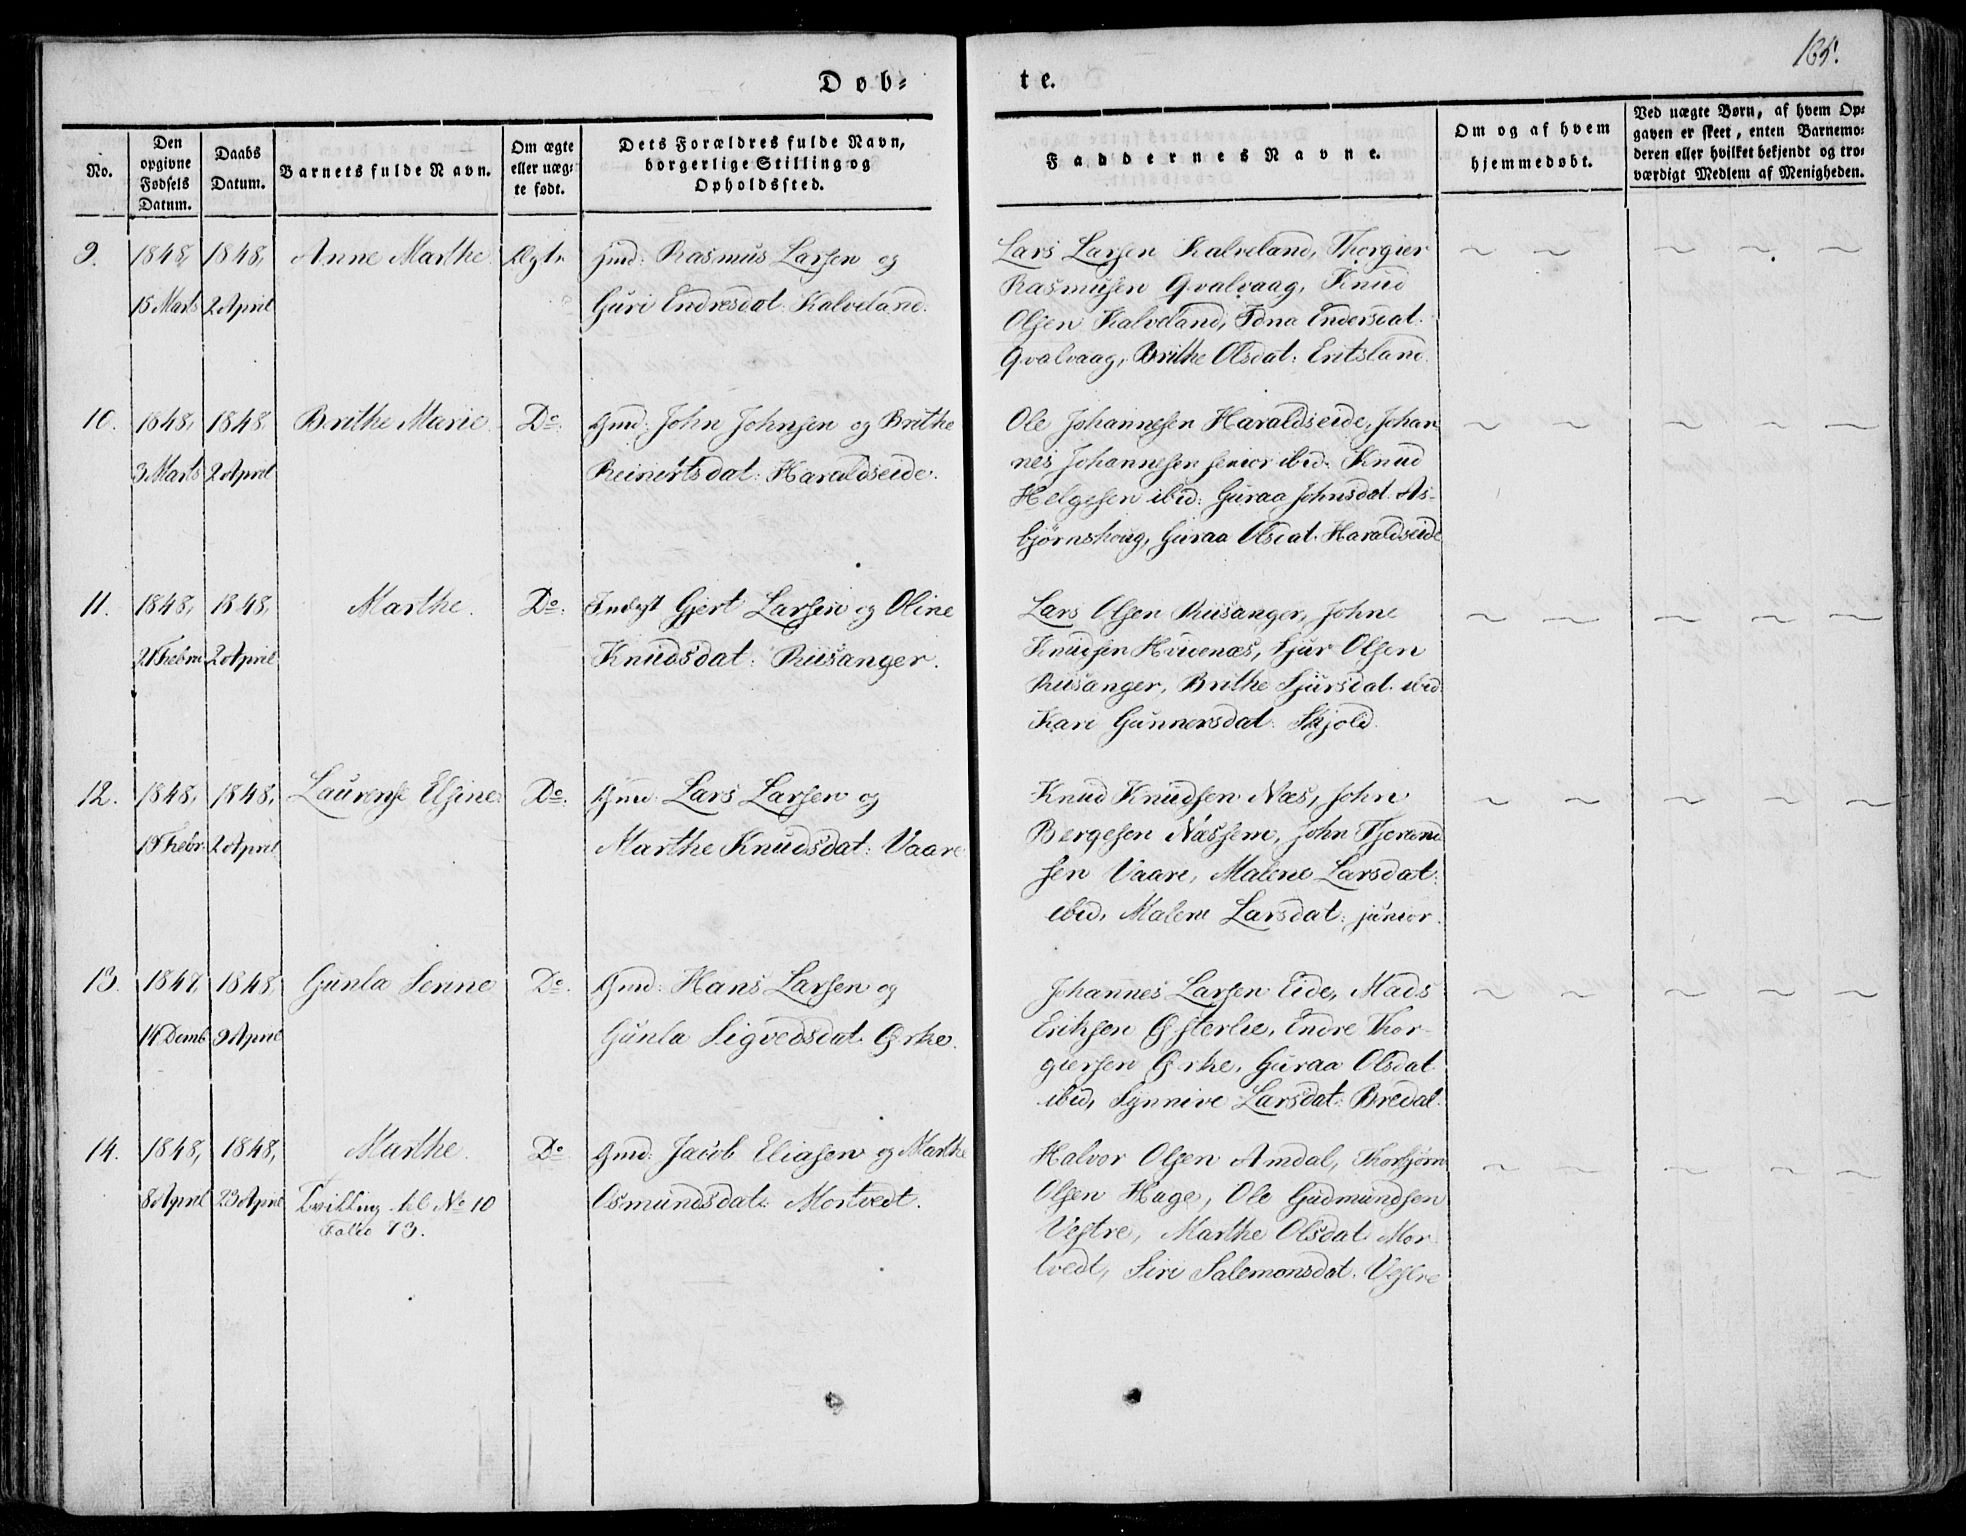 185.
Døb-
te.
No.
Den
opgivne
Fødsels
Datum.
Daabs
Datum.
Barnets fulde Navn.
Om ægte
eller uæg-
te født.
Dets Forældres fulde Navn,
borgerlige Stilling og
Opholdssted.
Faddernes Navne.
Om og af hvem
hjemmedøbt.
Ved uægte Børn, af hvem Op-
gaven er skeet, enten Barnemo-
deren eller hvilket bekjendt og tro-
værdigt Medlem af Menigheden.
9.
1848,
15 Marts
1848,
2 April
Anne Marthe
Ægte
Gmd: Rasmus Larsen og
Guri Endresdat: Kalveland.
Lars Larsen Kalveland, Thorgier
Rasmusen Qvalvaag, Knud
Olsen Kalveland, Edna Endersdat:
Qvalvaag, Brithe Olsdat: Eritsland.
10.
1848,
3 Marts
1848,
2 April
Brithe Marie
Do.
Gmd: John Johnsen og Brithe
Reinertsdat: Haraldseide.
Ole Johannesen Haraldseide, Johan
nes Johannesen senior ibid: Knud
Helgesen ibid: Guraa Johnsdat: As-
bjørnshoug, Guraa Olsdat. Haraldseide
11.
1848,
21 Febru
1848,
2 April
Marthe.
Do.
Inderst Gjert Larsen og Oline
Knudsdat: Riisanger.
Lars Olsen Riisanger, Johne
Knudsen Hvidenæs, Sjur Olsen
Riisanger, Brithe Sjursdat. ibid
Kari Gunnersdat. Skjold.
12.
1848,
19 Febr:
1848,
2 April
Laurense Elsine
Do.
Gmd Lars Larsen og
Marthe Knudsdat: Vaare
Knud Knudsen Næs, John
Bergesen Næssem, John Tjerand
sen Vaare, Malene Larsdat:
ibid, Malene Larsdat: junior.
13.
1847,
14 Decmb
1848,
9 April
Gunla Senne
Do.
Gmd: Hans Larsen og
Gunla Sigvedsdat. Ørke.
Johannes Larsen Eide, Mads
Eriksen Østerlie, Endre Thor-
giersen Ørke, Guraa Olsdat
ibid, Synnive Larsdat: Bredal.
14.
1848,
8 April
1848,
23 April
Marthe.
Tvilling til No 10
Folio 73.
Do
Gmd: Jacob Eliasen og Marthe
Osmundsdat: Mortvedt.
Halvor Olsen Amdal, Thorbjørn
Olsen Hage, Ole Gudmundsen
Vestre, Marthe Olsdat Mor
tvedt, Siri Salemonsdat. Vestre